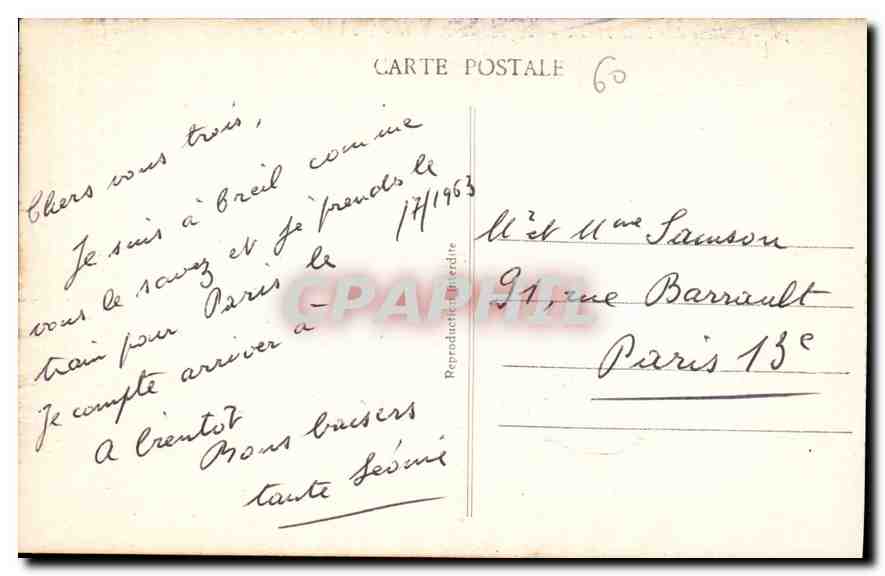 CARTE POSTALE
60
Chers vous trois,
Je suis à Breil comme
vous le savez et je prends le
train pour Paris le 17/1963
Je compte arriver à -
A bientot
Bons baisers
tante Léonie
Reproduction Interdite
Mr et Mme Samson
91, rue Barrault
Paris 13e
CPAPHIL